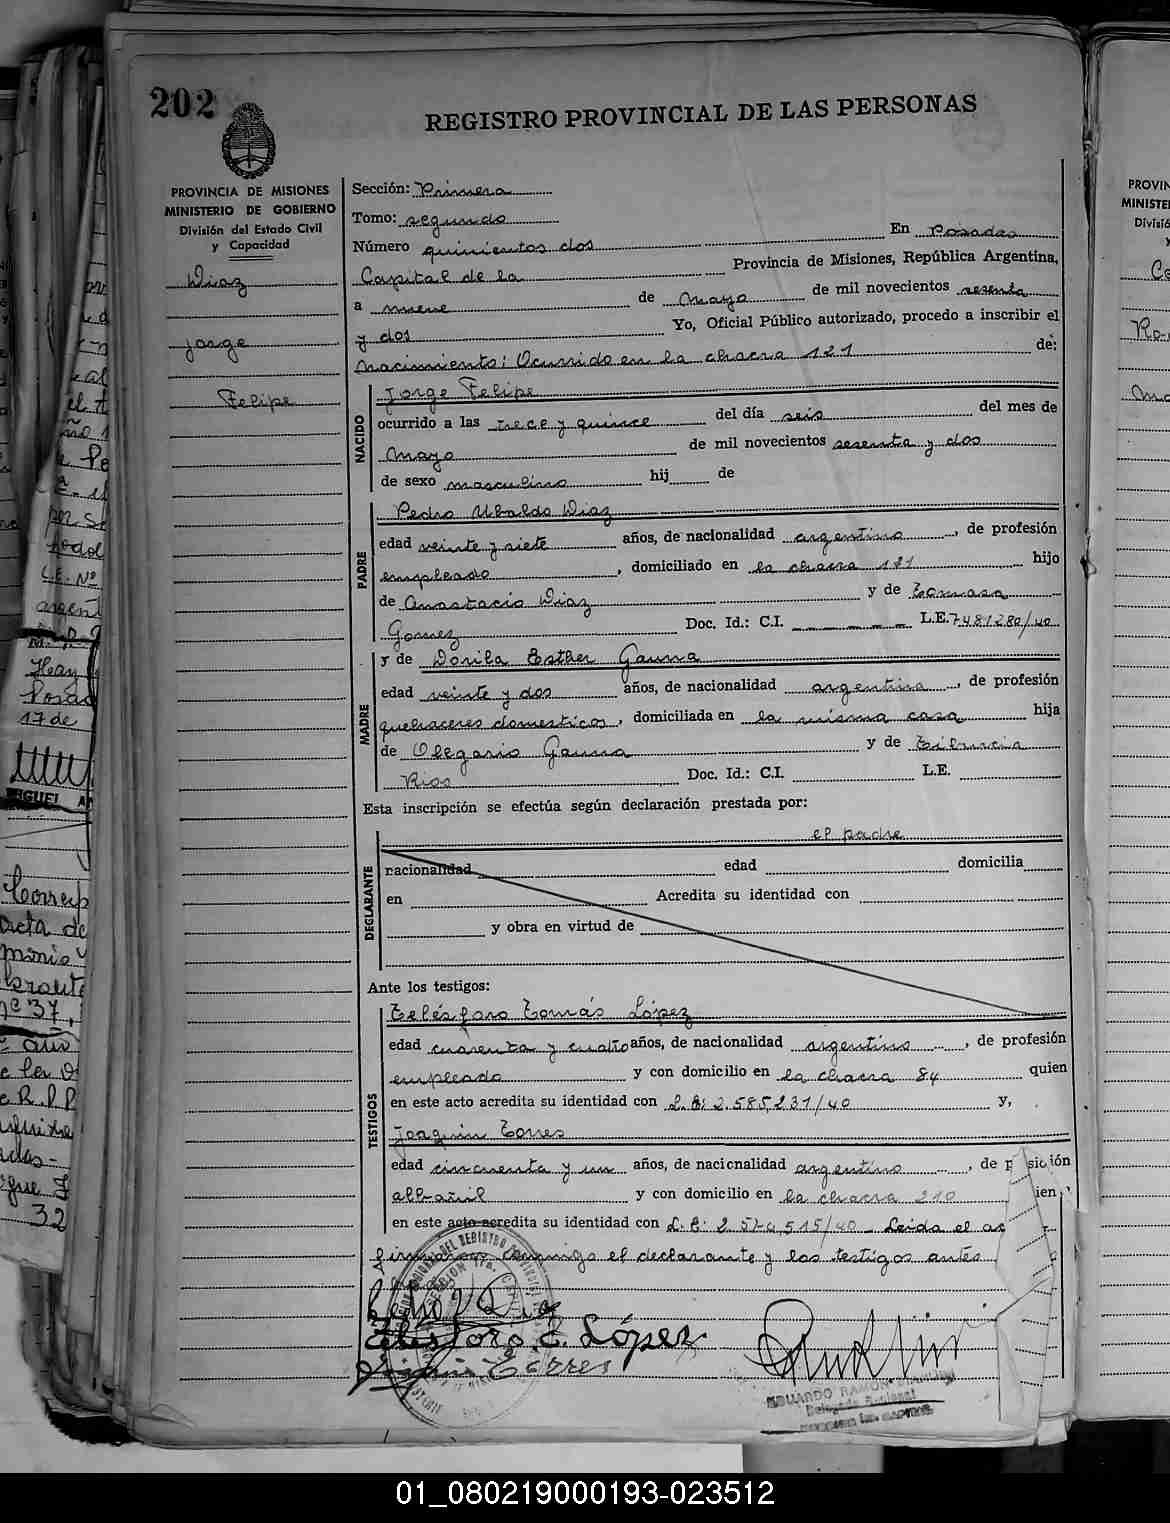 202
REGISTRO PROVINCIAL DE LAS PERSONAS
PROVINCIA DE MISIONES
MINISTERIO DE GOBIERNO
División del Estado Civil
y Capacidad
Diaz
Jorge
Felipe
Sección: Primera
Tomo: segundo
Número quinientos dos En Posadas
Capital de la Provincia de Misiones, República Argentina,
a nueve de Mayo de mil novecientos sesenta
y dos Yo, Oficial Público autorizado, procedo a inscribir el
nacimiento: Ocurrido en la chacra 121 de:
NACIDO
Jorge Felipe
ocurrido a las trece y quince del día seis del mes de
Mayo de mil novecientos sesenta y dos
de sexo masculino hij de
PADRE
Pedro Ubaldo Diaz
edad veinte y siete años, de nacionalidad argentino, de profesión
empleado, domiciliado en la chacra 121 hijo
de Anastacio Diaz y de Tomasa
Gomez Doc. Id.: C.I. L.E. 7481280/40
MADRE
y de Dorila Esther Gauna
edad veinte y dos años, de nacionalidad argentina, de profesión
quehaceres domesticos, domiciliada en la misma casa hija
de Olegario Gauna y de
Rios Doc. Id.: C.I. L.E.
Esta inscripción se efectúa según declaración prestada por:
el padre
DECLARANTE
nacionalidad edad domicilia
en Acredita su identidad con
y obra en virtud de
Ante los testigos:
TESTIGOS
Telésforo Tomás López
edad cuarenta y cuatro años, de nacionalidad argentino, de profesión
empleado y con domicilio en la chacra 84 quien
en este acto acredita su identidad con L.E: 2.585,231/40 y,
Joaquin Torres
edad cincuenta y un años, de nacionalidad argentino, de p sición
albañil y con domicilio en la chacra 210 ien
en este acto acredita su identidad con L.E: 515/40 Leida el ac
firmaron conmigo el declarante y los testigos antes
Pedro U Diaz
Telésforo T. López
Joaquin Torres
EDUARDO RAMON
Delegado Regional
01_080219000193-023512